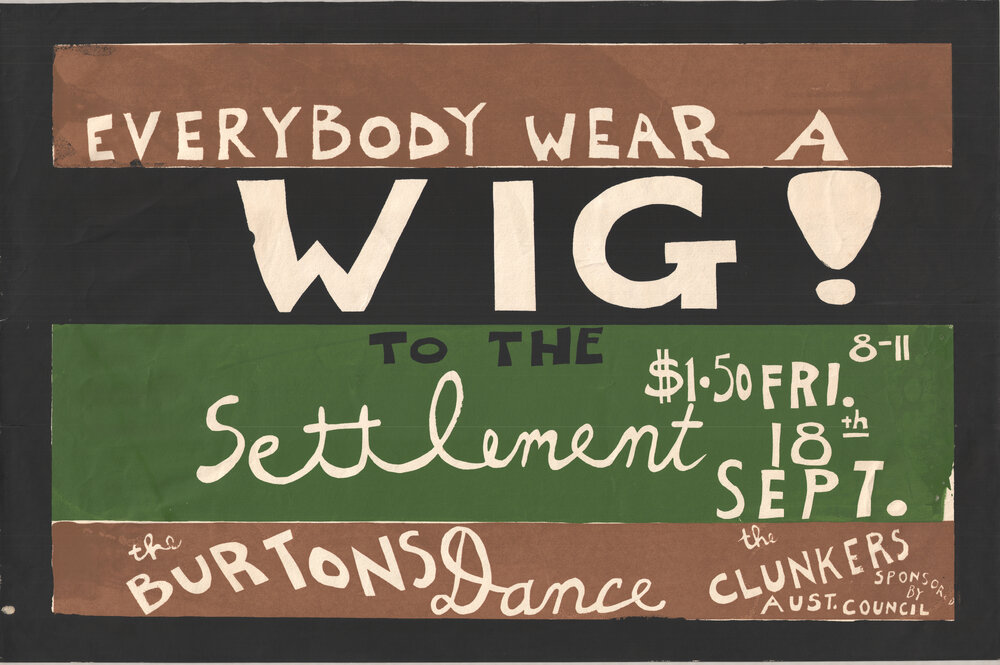 EVERYBODY WEAR A
WIG!
TO THE
Settlement
$1.50 FRI. 8-11
18th
SEPT.
the
BURTONS Dance
the
CLUNKERS
SPONSORED
BY
AUST. COUNCIL